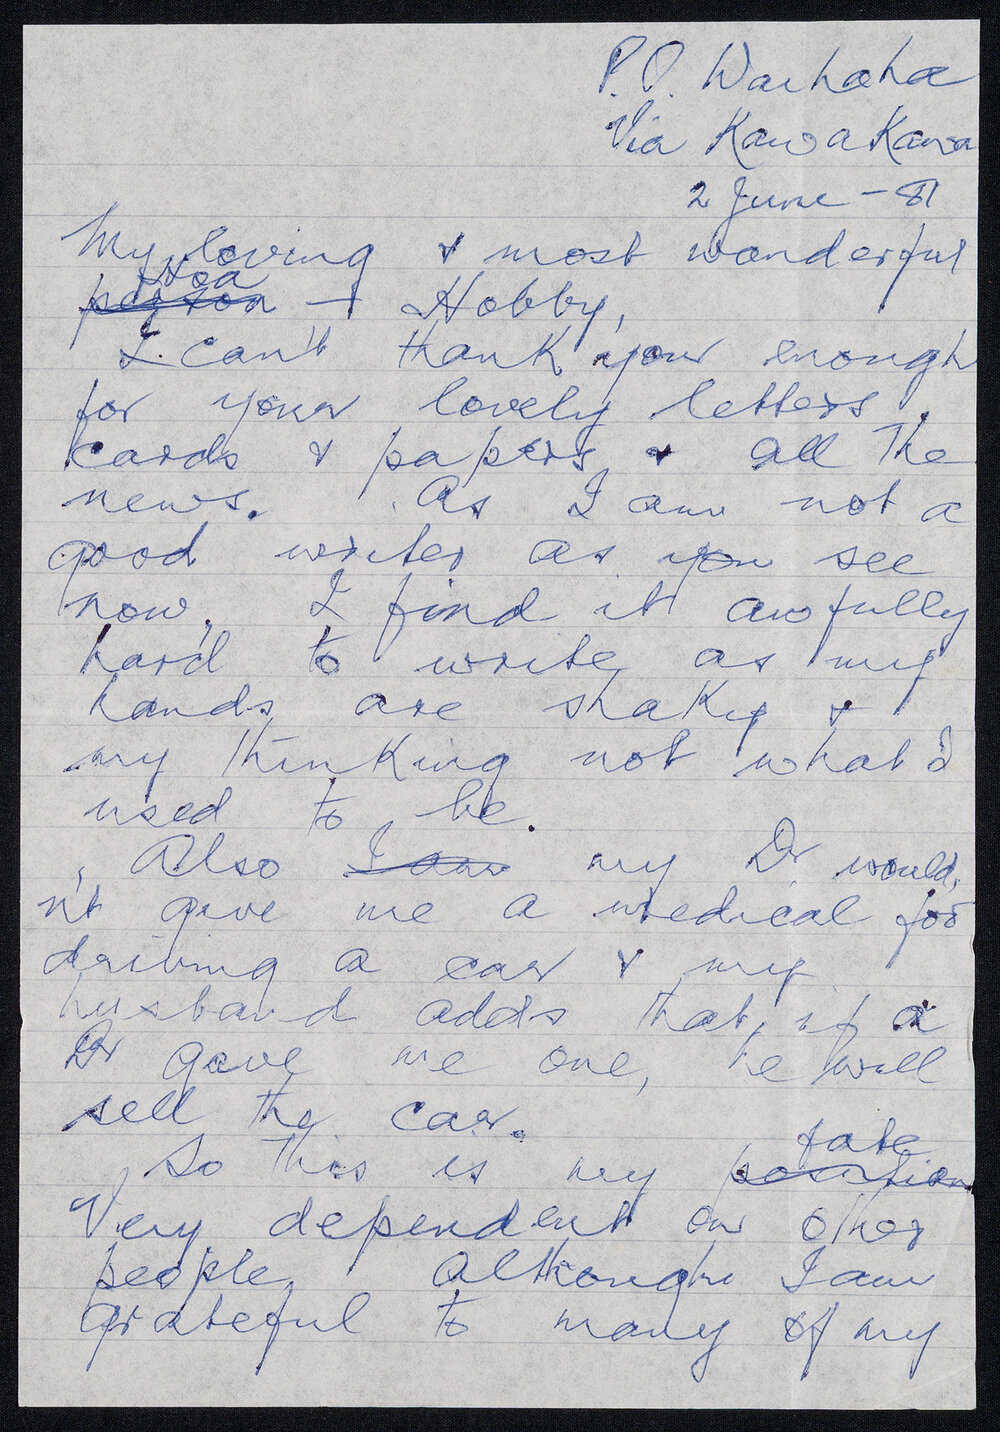 P.O. Waihaha
Via Kawakawa
2 June - 81
My loving & most wonderful
Noa
person + Hobby,
I can't thank your enough
for your lovely letters,
cards & papers & all the
news. As I am not a
good writer as you see
now, I find it awfully
hard to write as my
hands are shaky &
my thinking not what I
used to be.
Also I am my Dr would,
n't give me a medical for
driving a car & my
husband adds that, if a
Dr gave me one, he will
sell the car.
fate
So this is my position
Very dependent on other
people, Although I am
grateful to many of my